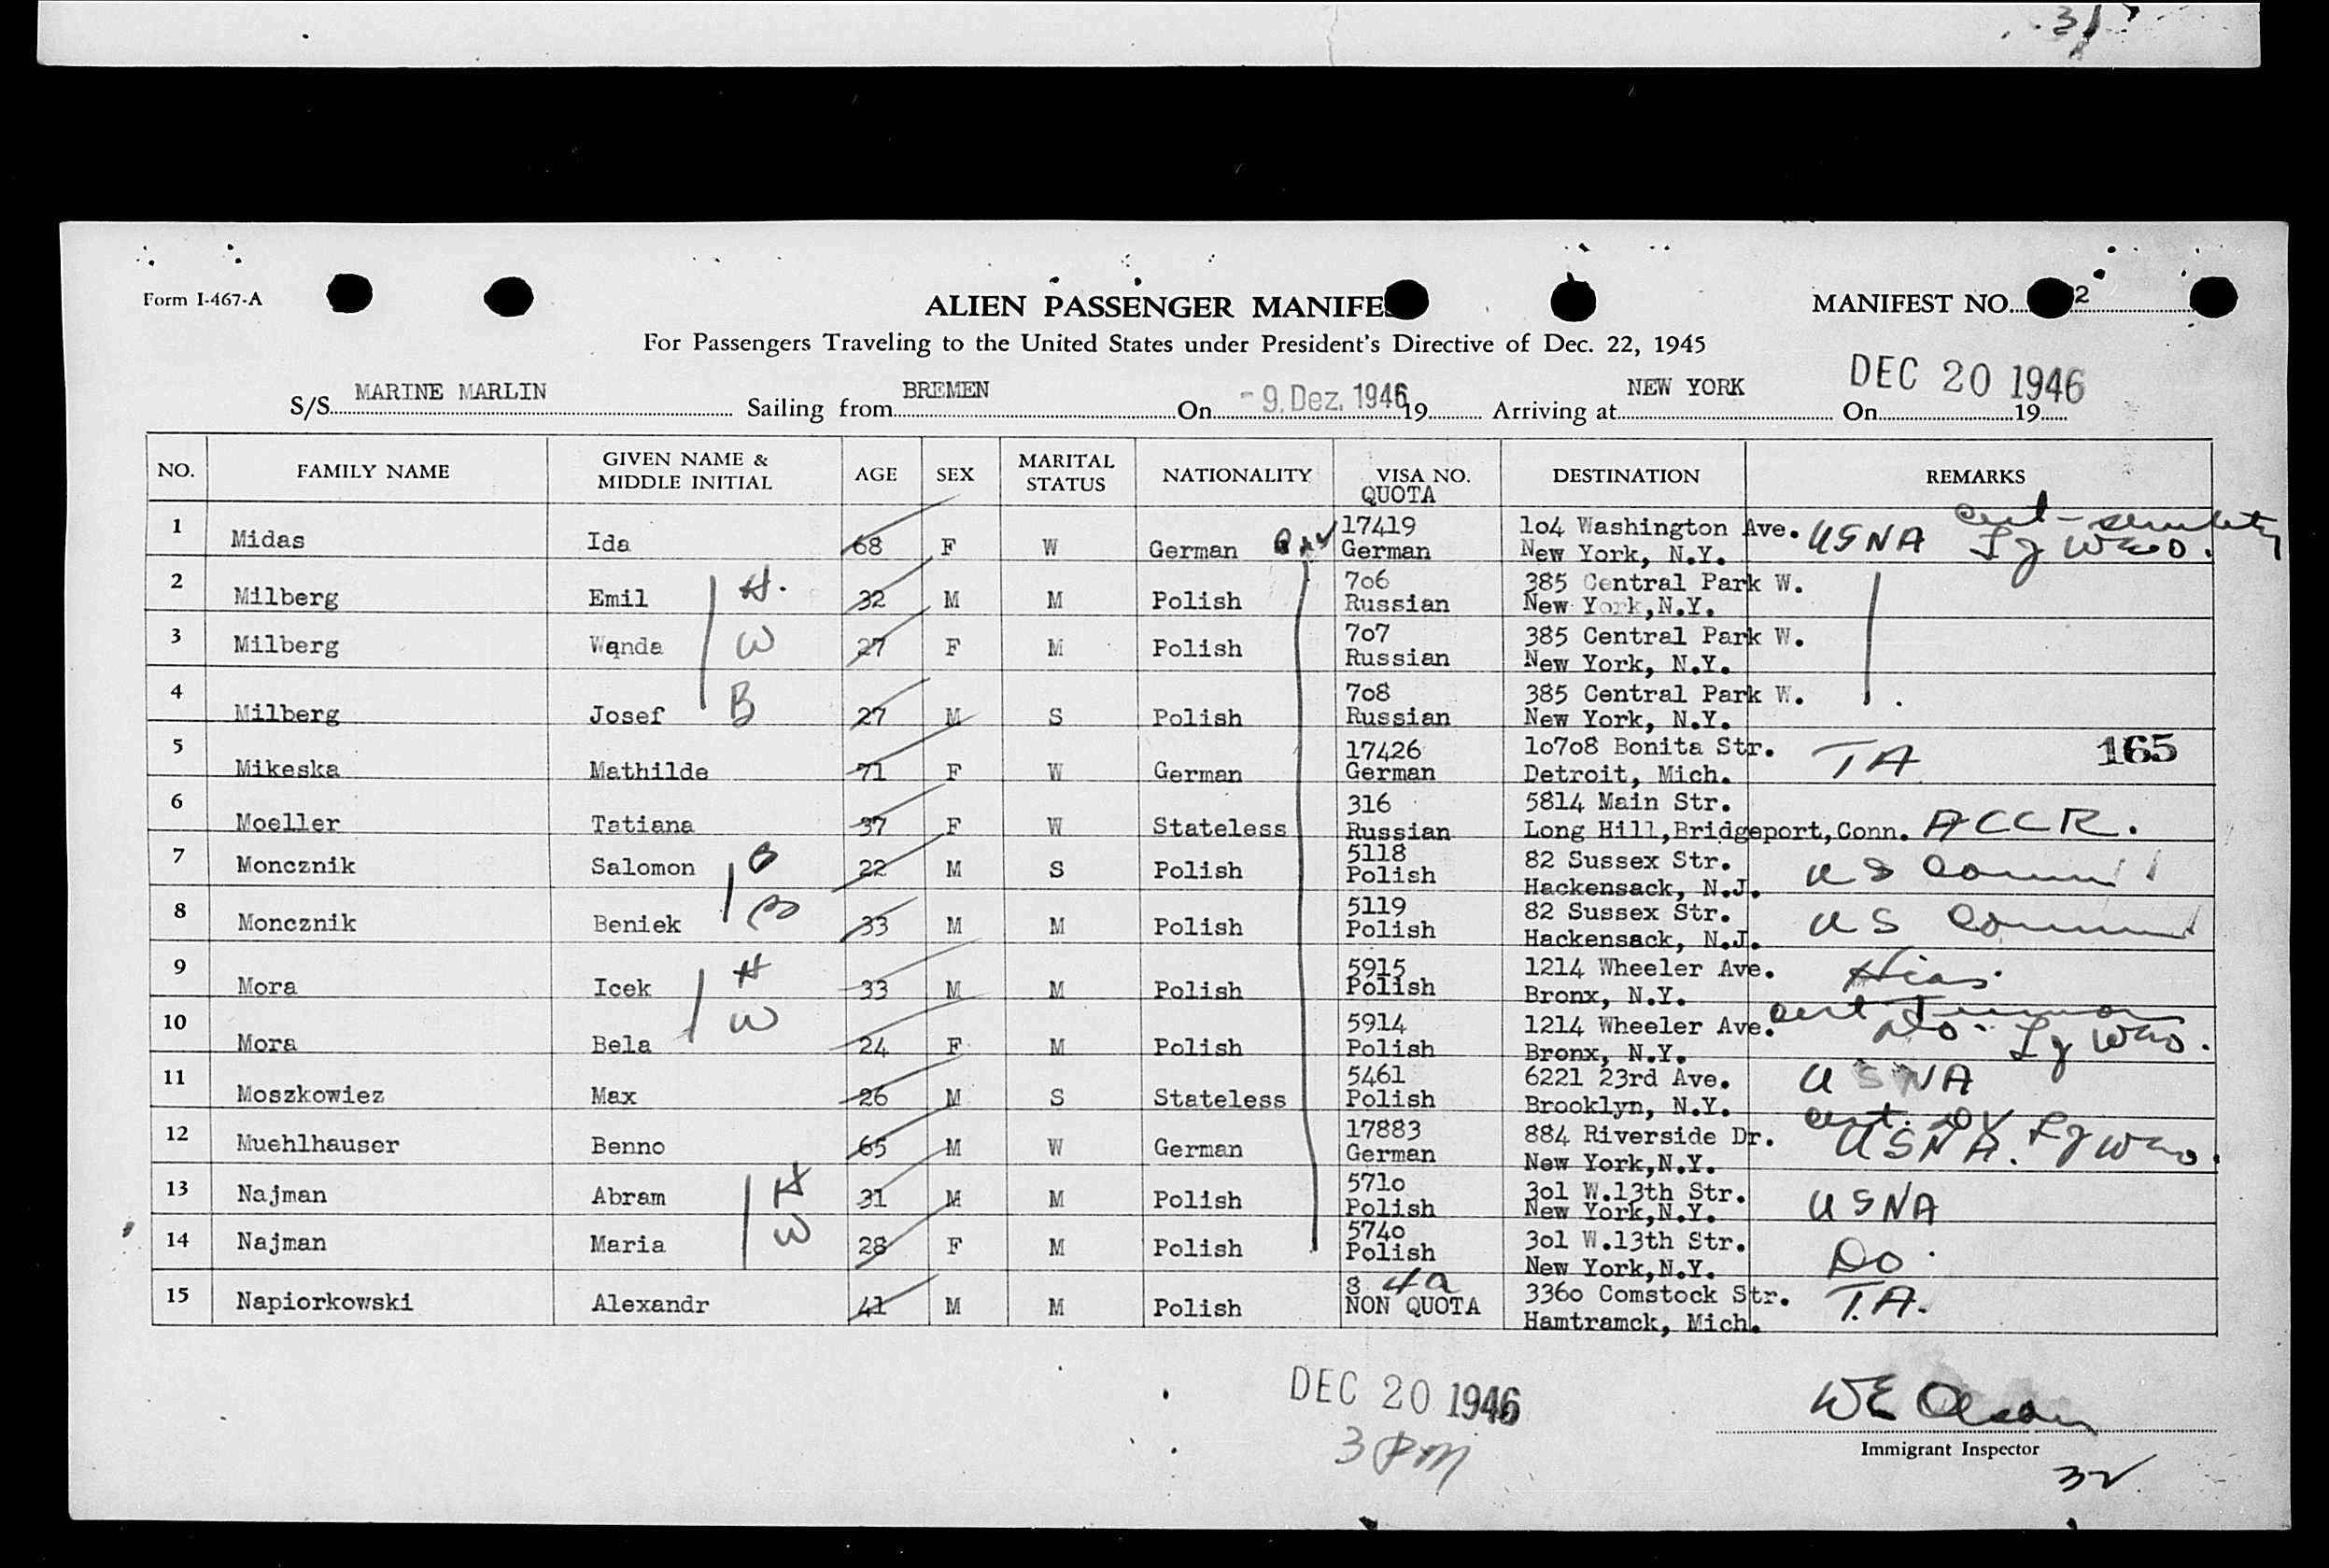 31
Form I-467-A
ALIEN PASSENGER MANIFES
MANIFEST NO. 2
For Passengers Traveling to the United States under President's Directive of Dec. 22, 1945
S/S MARINE MARLIN Sailing from BREMEN On - 9. Dez. 1946 19 Arriving at NEW YORK On DEC 20 1946 19
NO. FAMILY NAME GIVEN NAME & MIDDLE INITIAL AGE SEX MARITAL STATUS NATIONALITY VISA NO. QUOTA DESTINATION REMARKS
1 Midas Ida 68 F W German 17419 German 104 Washington Ave. New York, N.Y. USNA cert - senility
2 Milberg Emil H. 32 M M Polish 706 Russian 385 Central Park W. New York,N.Y.
3 Milberg Wanda W 27 F M Polish 707 Russian 385 Central Park W. New York, N.Y.
4 Milberg Josef B 27 M S Polish 708 Russian 385 Central Park W. New York, N.Y.
5 Mikeska Mathilde 71 F W German 17426 German 10708 Bonita Str. Detroit, Mich. TA 165
6 Moeller Tatiana 37 F W Stateless 316 Russian 5814 Main Str. Long Hill,Bridgeport,Conn. ACCR.
7 Moncznik Salomon B 22 M S Polish 5118 Polish 82 Sussex Str. Hackensack, N.J. US Comm
8 Moncznik Beniek B 33 M M Polish 5119 Polish 82 Sussex Str. Hackensack, N.J. US Comm
9 Mora Icek H 33 M M Polish 5915 Polish 1214 Wheeler Ave. Bronx, N.Y. Hias.
10 Mora Bela W 24 F M Polish 5914 Polish 1214 Wheeler Ave. Bronx, N.Y. cert Do
11 Moszkowiez Max 26 M S Stateless 5461 Polish 6221 23rd Ave. Brooklyn, N.Y. USNA
12 Muehlhauser Benno 65 M W German 17883 German 884 Riverside Dr. New York,N.Y. cert. USNA.
13 Najman Abram H 31 M M Polish 5710 Polish 301 W.13th Str. New York,N.Y. USNA
14 Najman Maria W 28 F M Polish 5740 Polish 301 W.13th Str. New York,N.Y. Do.
15 Napiorkowski Alexandr 41 M M Polish 8 4a NON QUOTA 3360 Comstock Str. Hamtramck, Mich. T.A.
DEC 20 1946
3 PM
WE Olson
Immigrant Inspector
32